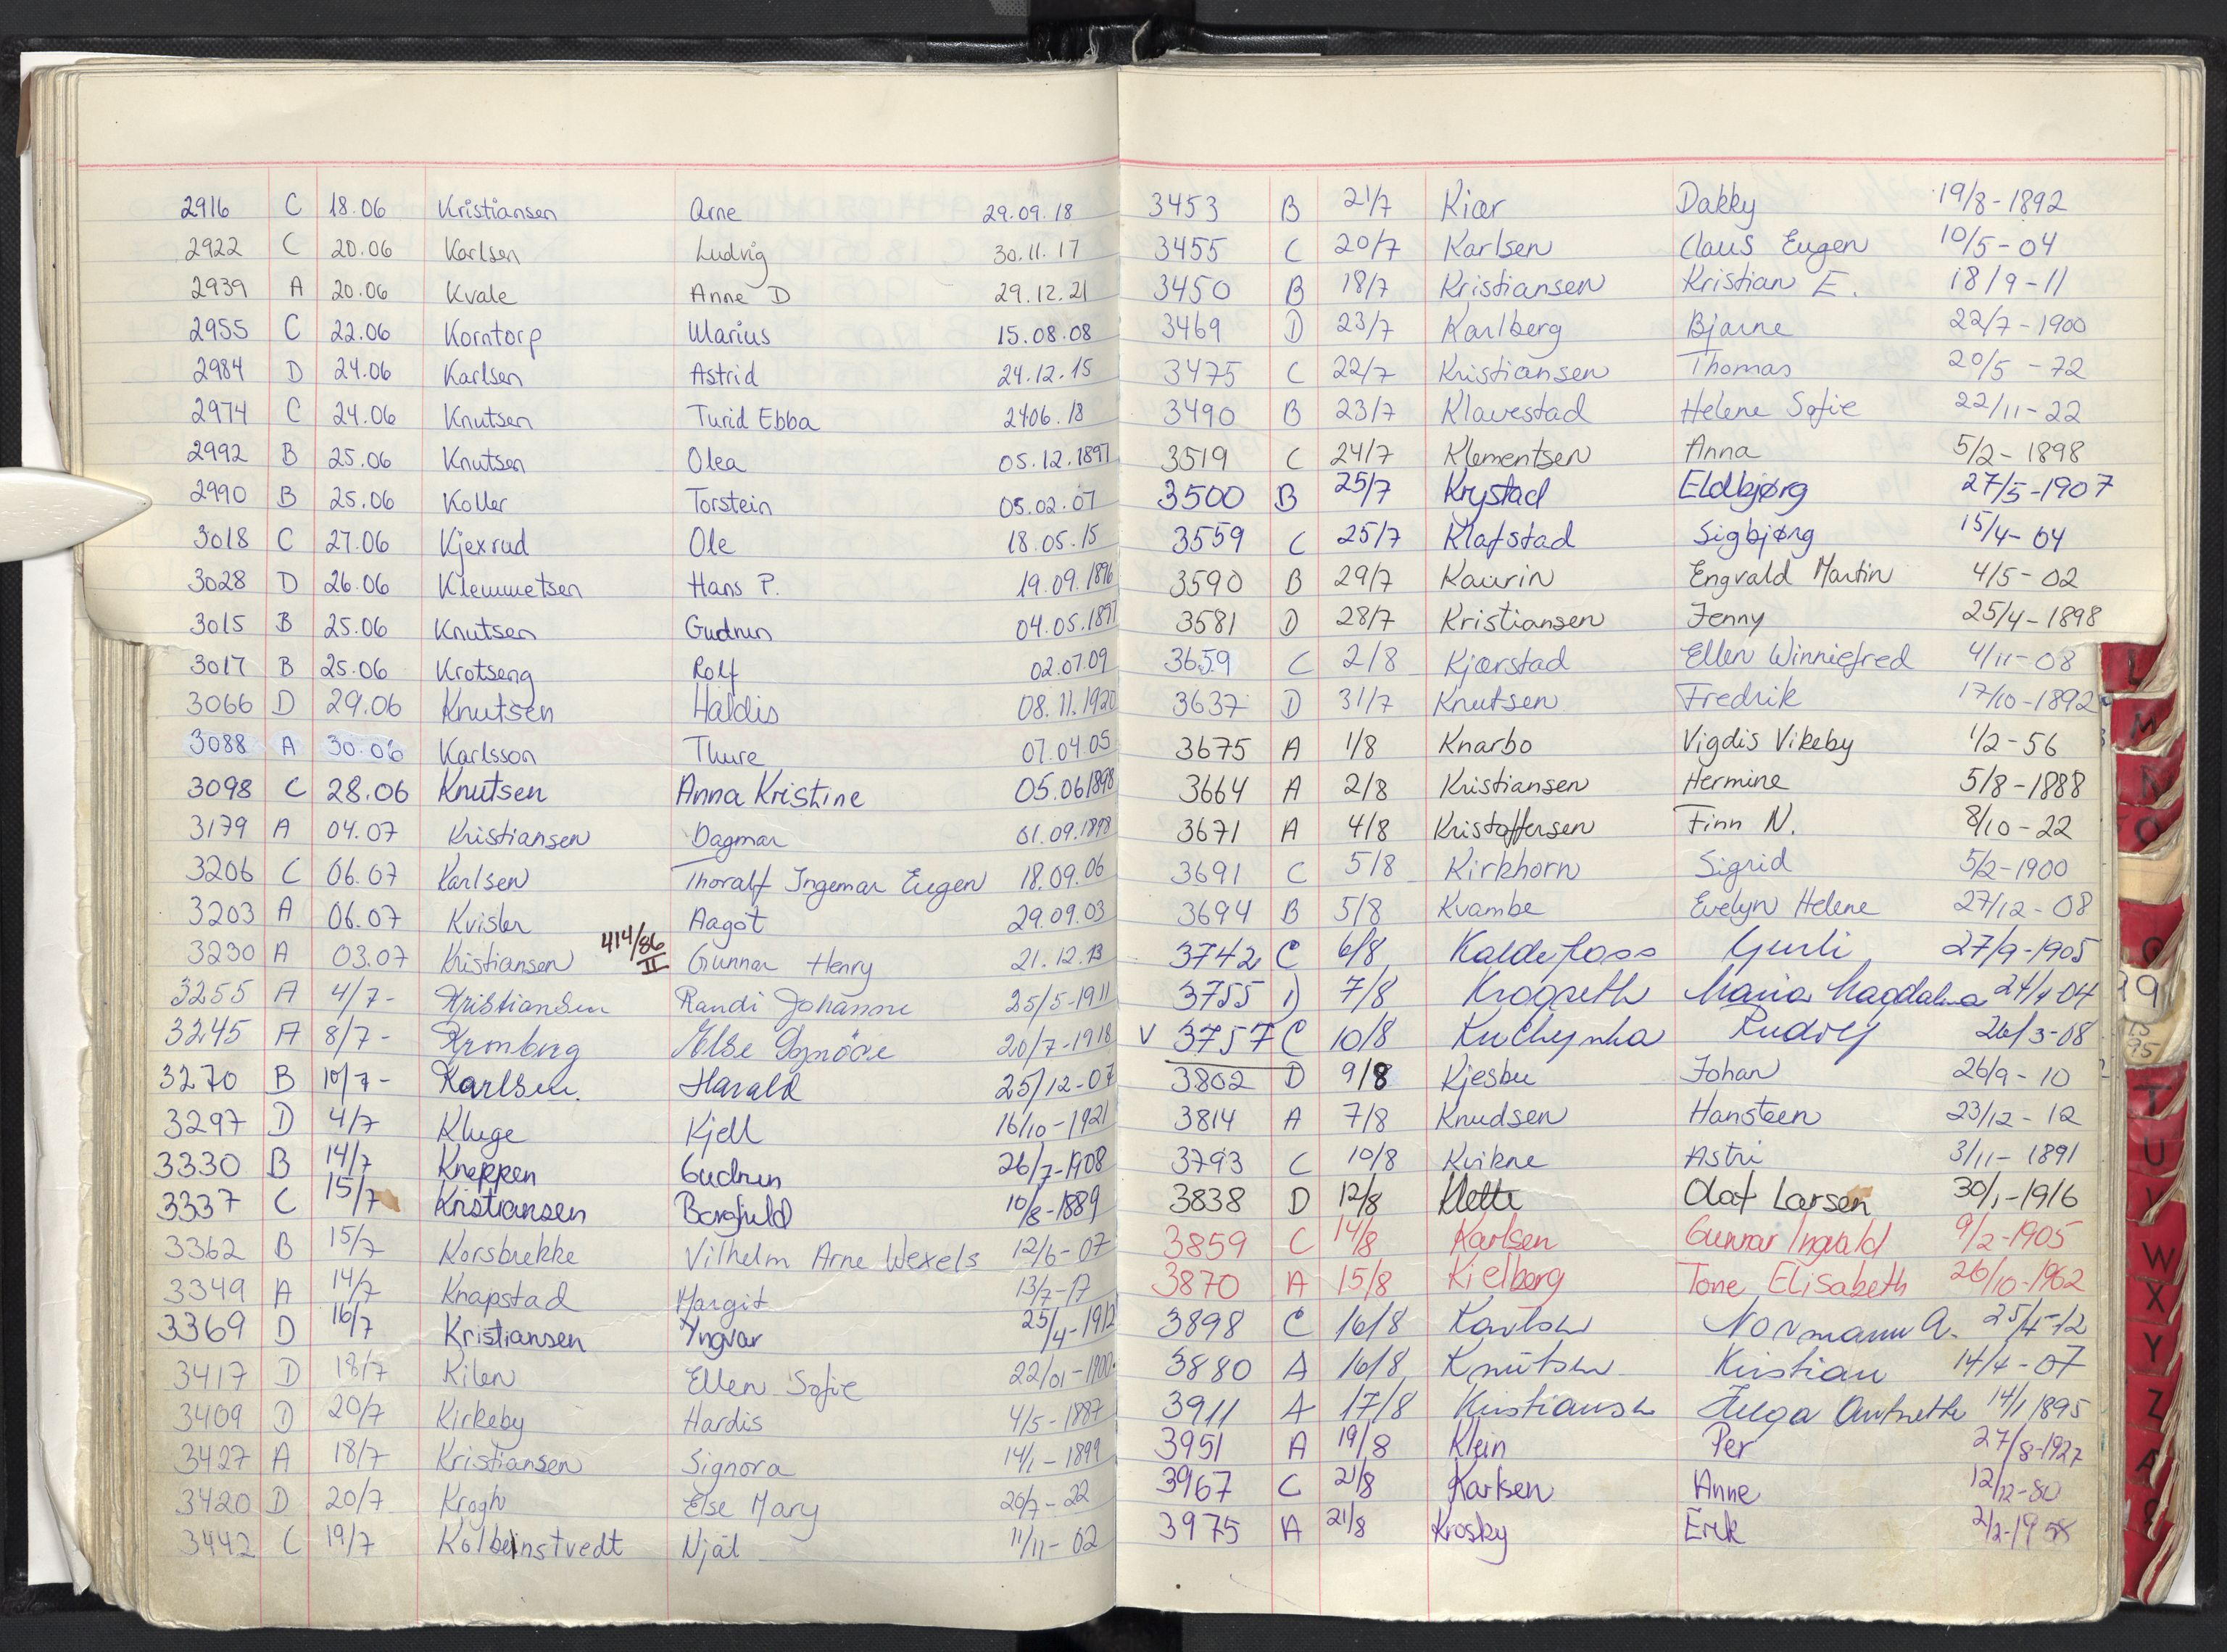 2916 C 18.06 Kristiansen Arne 29.09.18
2922 C 20.06 Karlsen Ludvig 30.11.17
2939 A 20.06 Kvale Anne D 29.12.21
2955 C 22.06 Korntorp Marius 15.08.08
2984 D 24.06 Karlsen Astrid 24.12.15
2974 C 24.06 Knutsen Turid Ebba 2406.18
2992 B 25.06 Knutsen Olea 05.12.1897
2990 B 25.06 Koller Torstein 05.02.07
3018 C 27.06 Kjexrud Ole 18.05.15
3028 D 26.06 Klemmetsen Hans P. 19.09.1896
3015 B 25.06 Knutsen Gudrun 04.05.1897
3017 B 25.06 Krotseng Rolf 02.07.09
3066 D 29.06 Knutsen Haldis 08.11.1920
3088 A 30.06 Karlsson Thure 07.04.05
3098 C 28.06 Knutsen Anna Kristine 05.06.1898
3179 A 04.07 Kristiansen Dagmar 01.09.1898
3206 C 06.07 Karlsen Thoralf Ingemar Eugen 18.09.06
3203 A 06.07 Kvisler Aagot 29.09.03
3230 A 03.07 Kristiansen 414/86 II Gunnar Henry 21.12.13
3255 A 4/7- Kristiansen Randi Johanne 25/5-1911
3245 A 8/7- Kronberg Else 20/7-1918
3270 B 10/7- Karlsen. Harald 25/12-07
3297 D 4/7 Kluge Kjell 16/10-1921
3330 B 14/7 Kneppen Gudrun 26/7-1908
3337 C 15/7 Kristiansen Borghild 10/8-1889
3362 B 15/7 Korsbrekke Vilhelm Arne Wexels 12/6-07
3349 A 14/7 Knapstad Margit 13/7-17
3369 D 16/7 Kristiansen Yngvar 25/4-1912
3417 D 18/7 Kilen Ellen Sofie 22/01-1900
3409 D 20/7 Kirkeby Hardis 4/5-1887
3427 A 18/7 Kristiansen Signora 14/1-1899
3420 D 20/7 Krogh Else Mary 20/7-22
3442 C 19/7 Kolbeinstvedt Njål 11/11-02
3453 B 21/7 Kiær Dakky 19/8-1892
3455 C 20/7 Karlsen Claus Eugen 10/5-04
3450 B 18/7 Kristiansen Kristian E. 18/9-11
3469 D 23/7 Karlberg Bjarne 22/7-1900
3475 C 22/7 Kristiansen Thomas 20/5-72
3490 B 23/7 Klavestad Helene Sofie 22/11-22
3519 C 24/7 Klementsen Anna 5/2-1898
3500 B 25/7 Krystad Eldbjørg 27/5-1907
3559 C 25/7 Klafstad Sigbjørg 15/4-04
3590 B 29/7 Kaurin Engvald Martin 4/5-02
3581 D 28/7 Kristiansen Jenny 25/4-1898
3659 C 2/8 Kjærstad Ellen Winniefred 4/11-08
3637 D 31/7 Knutsen Fredrik 17/10-1892
3675 A 1/8 Knarbo Vigdis Vikeby 1/2-56
3664 A 2/8 Kristiansen Hermine 5/8-1888
3671 A 4/8 Kristoffersen Finn N. 8/10-22
3691 C 5/8 Kirkhorn Sigrid 5/2-1900
3694 B 5/8 Kvambe Evelyn Helene 27/12-08
3742 C 6/8 Kaldefoss Gurli 27/9-1905
3755 D 7/8 Krogseth Maria Magdalena 04
V 3757 C 10/8 Kuchynka Rudolf 26/3-08
3802 D 9/8 Kjesbu Johan 26/9-10
3814 A 7/8 Knudsen Hansteen 23/12-12
3793 C 10/8 Kvikne Astri 3/11-1891
3838 D 12/8 Klette Olaf Larsen 30/1-1916
3859 C 14/8 Karlsen Gunnar Ingvald 9/2-1905
3870 A 15/8 Kielberg Tone Elisabeth 26/10-1962
3898 C 16/8 Karlsen Normann A. 25/5-12
3880 A 16/8 Knutsen Kristian 14/4-07
3911 A 17/8 Kristiansen Helga Antnette 14/1 1895
3951 A 19/8 Klein Per 27/8-1927
3967 C 21/8 Karlsen Anne 12/12-80
3975 A 21/8 Krosby Erik 2/2-1958
L
M
N
O
T
U
V
W
X
Y
Z